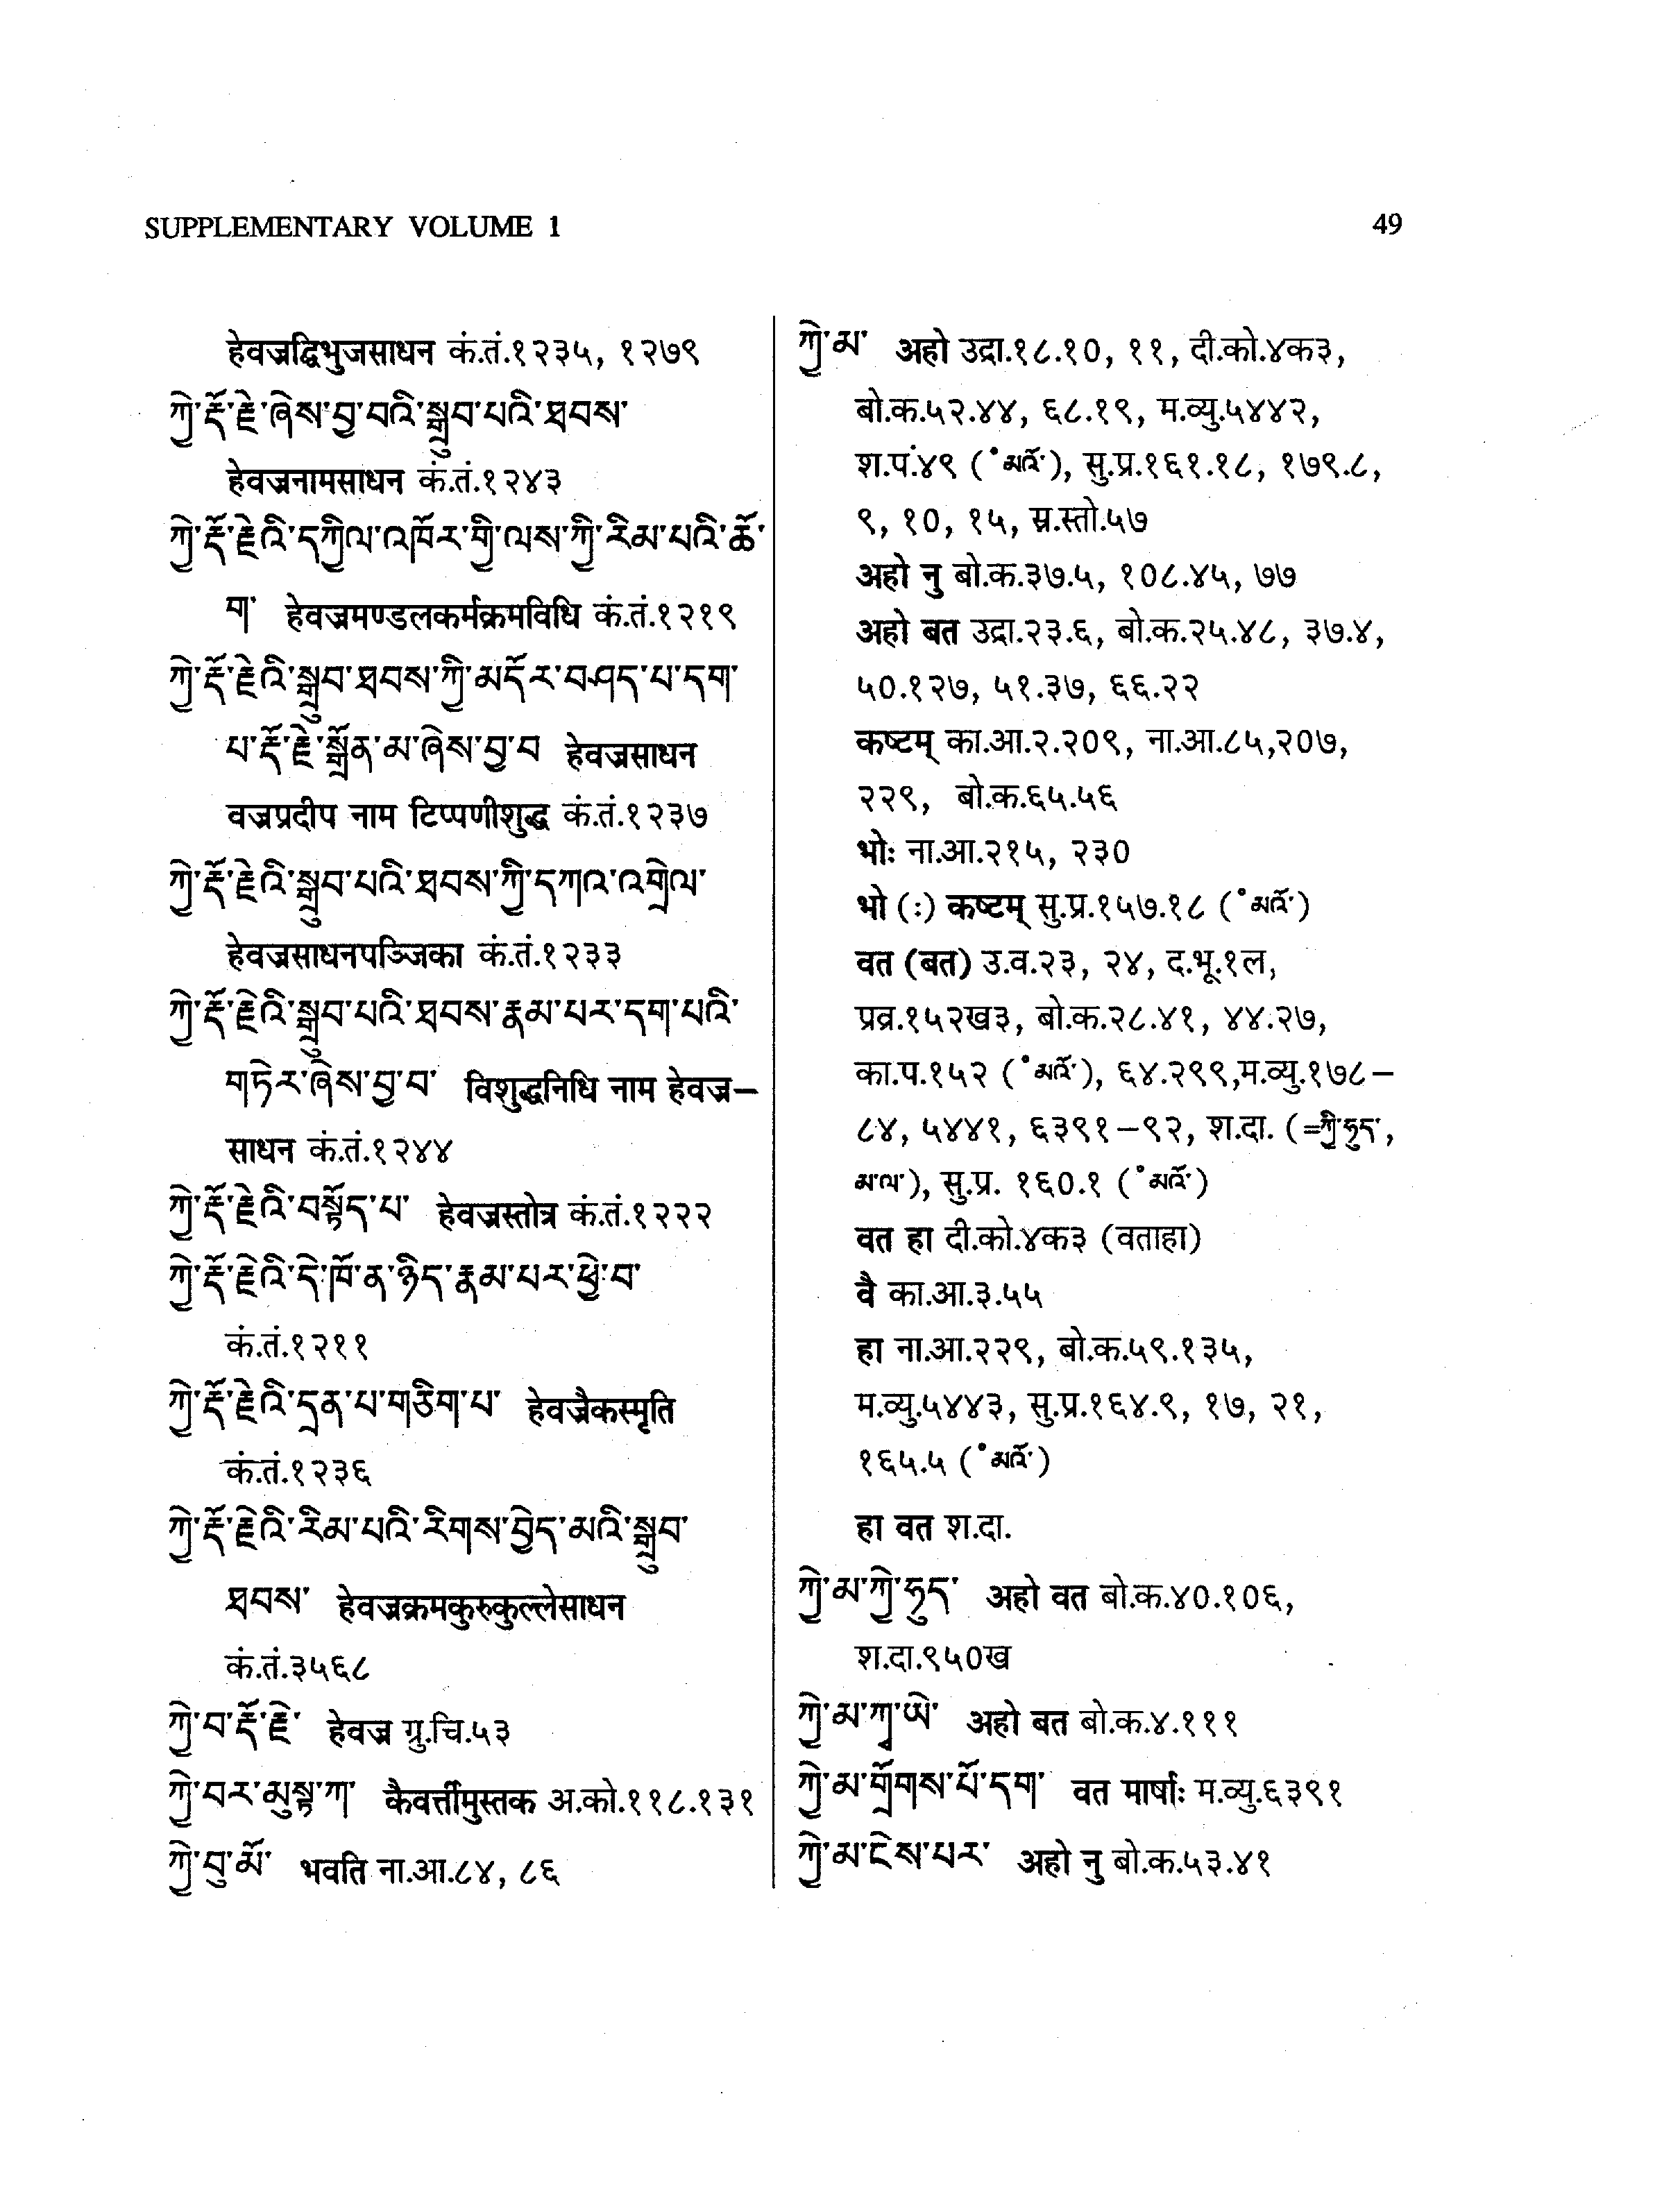 SUPPLEMENTARY VOLUME 1
49
हेवज्रद्विभुजसाधन कं.तं.१२३५, १२७९
ཀྱེ་རྡོ་རྗེ་ཞེས་བྱ་བའི་སྒྲུབ་པའི་ཐབས་
हेवज्रनामसाधन कं.तं.१२४३
ཀྱེ་རྡོ་རྗེའི་དཀྱིལ་འཁོར་གྱི་ལས་ཀྱི་རིམ་པའི་ཆོ་
ག་ हेवज्रमण्डलकर्मक्रमविधि कं.तं.१२१९
ཀྱེ་རྡོ་རྗེའི་སྒྲུབ་ཐབས་ཀྱི་མདོར་བཤད་པ་དག་
པ་རྡོ་རྗེ་སྒྲོན་མ་ཞེས་བྱ་བ हेवज्रसाधन
वज्रप्रदीप नाम टिप्पणीशुद्ध कं.तं.१२३७
ཀྱེ་རྡོ་རྗེའི་སྒྲུབ་པའི་ཐབས་ཀྱི་དཀའ་འགྲེལ་
हेवज्रसाधनपञ्जिका कं.तं.१२३३
ཀྱེ་རྡོ་རྗེའི་སྒྲུབ་པའི་ཐབས་རྣམ་པར་དག་པའི་
གཏེར་ཞེས་བྱ་བ་ विशुद्धनिधि नाम हेवज्र–
साधन कं.तं.१२४४
ཀྱེ་རྡོ་རྗེའི་བསྟོད་པ་ हेवज्रस्तोत्र कं.तं.१२२२
ཀྱེ་རྡོ་རྗེའི་དེ་ཁོ་ན་ཉིད་རྣམ་པར་ཕྱེ་བ་
कं.तं.१२११
ཀྱེ་རྡོ་རྗེའི་དྲན་པ་གཅིག་པ་ हेवज्रैकस्मृति
कं.तं.१२३६
ཀྱེ་རྡོ་རྗེའི་རིམ་པའི་རིགས་བྱེད་མའི་སྒྲུབ་
ཐབས་ हेवज्रक्रमकुरुकुल्लेसाधन
कं.तं.३५६८
ཀྱེ་བ་རྡོ་རྗེ་ हेवज्र गु.चि.५३
ཀྱེ་བར་མུསྟ་ཀ་ कैवर्त्तीमुस्तक अ.को.११८.१३१
ཀྱེ་བུ་མོ་ भवति ना.आ.८४, ८६
ཀྱེ་མ་ अहो उद्रा.१८.१०, ११, दी.को.४क३,
बो.क.५२.४४, ६८.१९, म.व्यु.५४४२,
श.पं.४९ (˚མའོ་), सु.प्र.१६१.१८, १७९.८,
९, १०, १५, स्र.स्तो.५७
अहो नु बो.क.३७.५, १०८.४५, ७७
अहो बत उद्रा.२३.६, बो.क.२५.४८, ३७.४,
५०.१२७, ५१.३७, ६६.२२
कष्टम् का.आ.२.२०९, ना.आ.८५,२०७,
२२९, बो.क.६५.५६
भोः ना.आ.२१५, २३०
भो (ः) कष्टम् सु.प्र.१५७.१८ (˚མའོ་)
वत (बत) उ.व.२३, २४, द.भू.१ल,
प्रव्र.१५२ख३, बो.क.२८.४१, ४४.२७,
का.प.१५२ (˚མའོ་), ६४.२९९,म.व्यु.१७८–
८४, ५४४१, ६३९१–९२, श.दा. (=ཀྱི་ཧུད་,
མ་ལ་), सु.प्र. १६०.१ (˚མའོ་)
वत हा दी.को.४क३ (वताहा)
वै का.आ.३.५५
हा ना.आ.२२९, बो.क.५९.१३५,
म.व्यु.५४४३, सु.प्र.१६४.९, १७, २१,
१६५.५ (˚མའོ་)
हा वत श.दा.
ཀྱེ་མ་ཀྱི་ཧུད་ अहो वत बो.क.४०.१०६,
श.दा.९५०ख
ཀྱེ་མ་ཀྭ་ཡེ་ अहो बत बो.क.४.१११
ཀྱེ་མ་གྲོགས་པོ་དག་ वत मार्षाः म.व्यु.६३९१
ཀྱེ་མ་ངེས་པར་ अहो नु बो.क.५३.४१